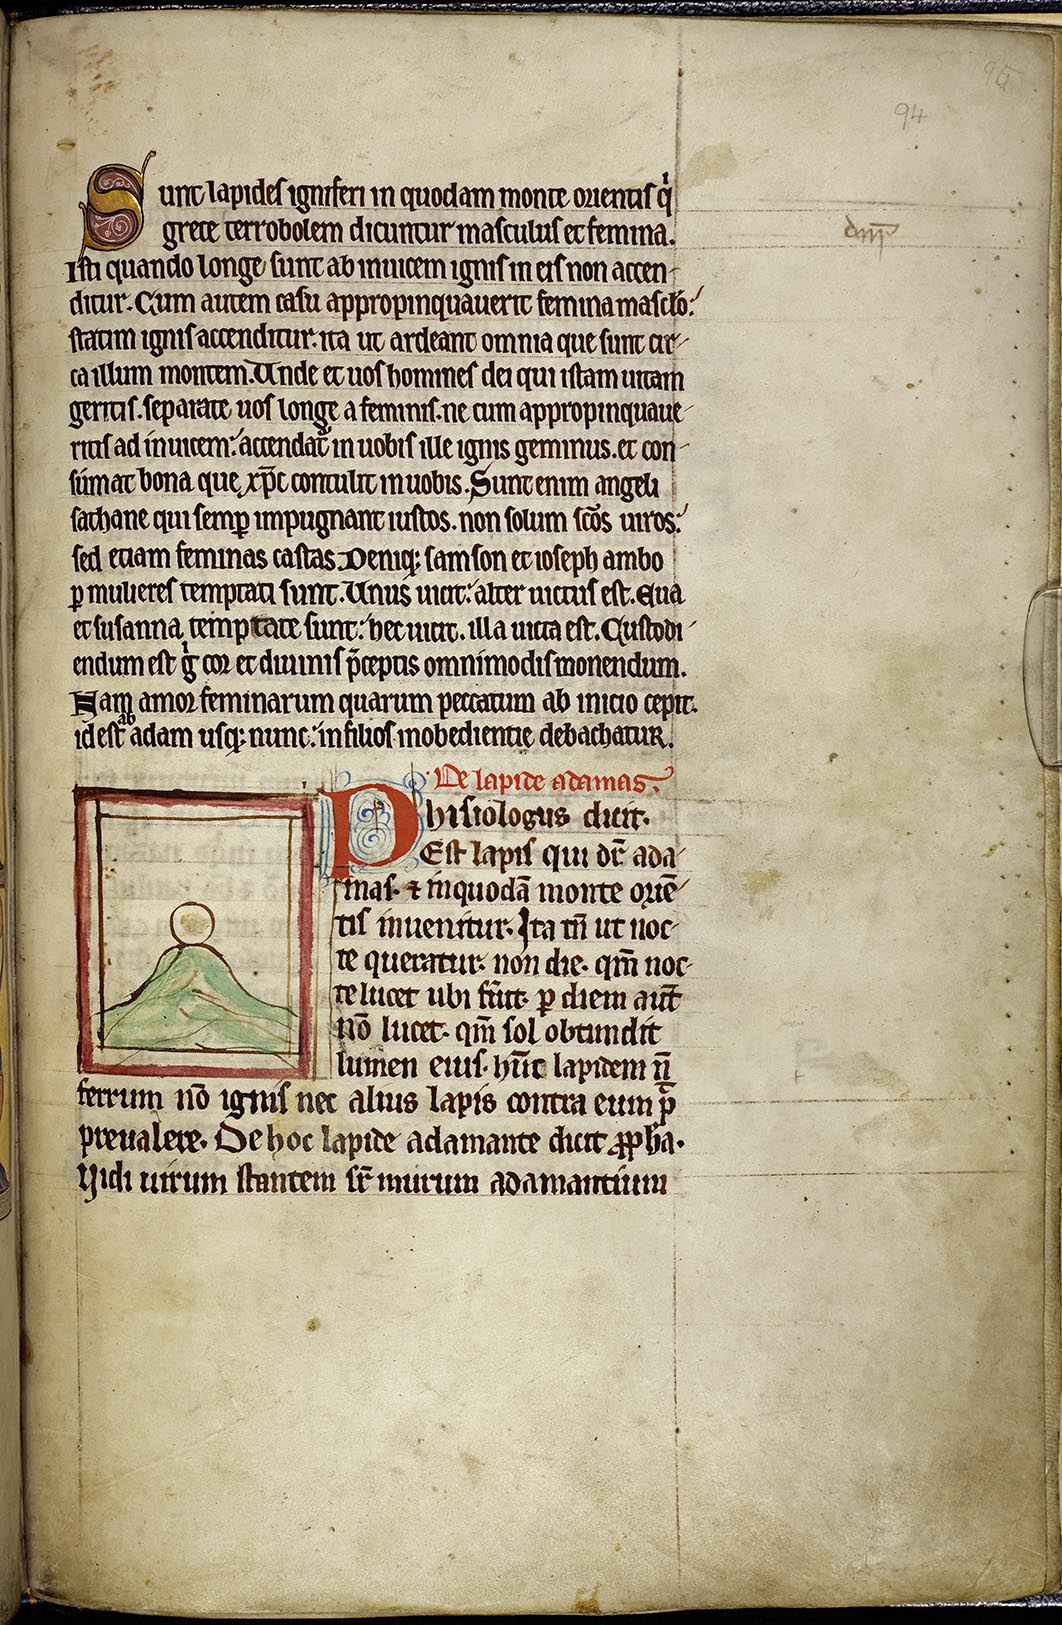 94
94
Sunt lapides igniferi in quodam monte orientis q̇
grece terrobolem dicuntur masculus et femina.
Isti quando longe sunt ab inuicem ignis in eis non accen-
ditur. Cum autem casu appropinquauerit femina masclo:
statim ignis accenditur. ita ut ardeant omnia que sunt cir-
ca illum montem. Unde et uos homines dei qui istam uitam
geritis. separate uos longe a feminis. ne cum appropinquaue-
ritis ad inuicem: accendat᷑ in uobis ille ignis geminus. et con-
sumat bona que xp̄c contulit in uobis. Sunt enim angeli
sathane qui semꝑ impugnant iustos. non solum sc̄os uiros:
sed etiam feminas castas. Deniq; samson et ioseph ambo
ꝑ mulieres temptati sunt. Unus uicit: alter uictus est. Eua
et susanna temptate sunt: hec uicit. illa uicta est. Custodi-
endum est g̍ cor et diuinis p̄ceptis omnimodis monendum.
Nam amor feminarum quarum peccatum ab inicio cepit.
id est ab adam usq; nunc: in filios inobedientie debachatur.
De lapide adamas.
Phisiologus dicit.
Est lapis qui dr̄ ada-
mas. ⁊ in quodā monte oriē-
tis inuenitur. Ita tn̄ ut noc-
te queratur. non die. qm̄ noc-
te lucet ubi fu̅it. ꝑ diem aut̄
nō lucet. qm̄ sol obtundit
lumen eius. hu̅c lapidem n̄
ferrum nō ignis nec alius lapis contra eum p̄
preualere. De hoc lapide adamante dicit ꝓph̄a.
Uidi uirum stantem sr̄ murum adamantium